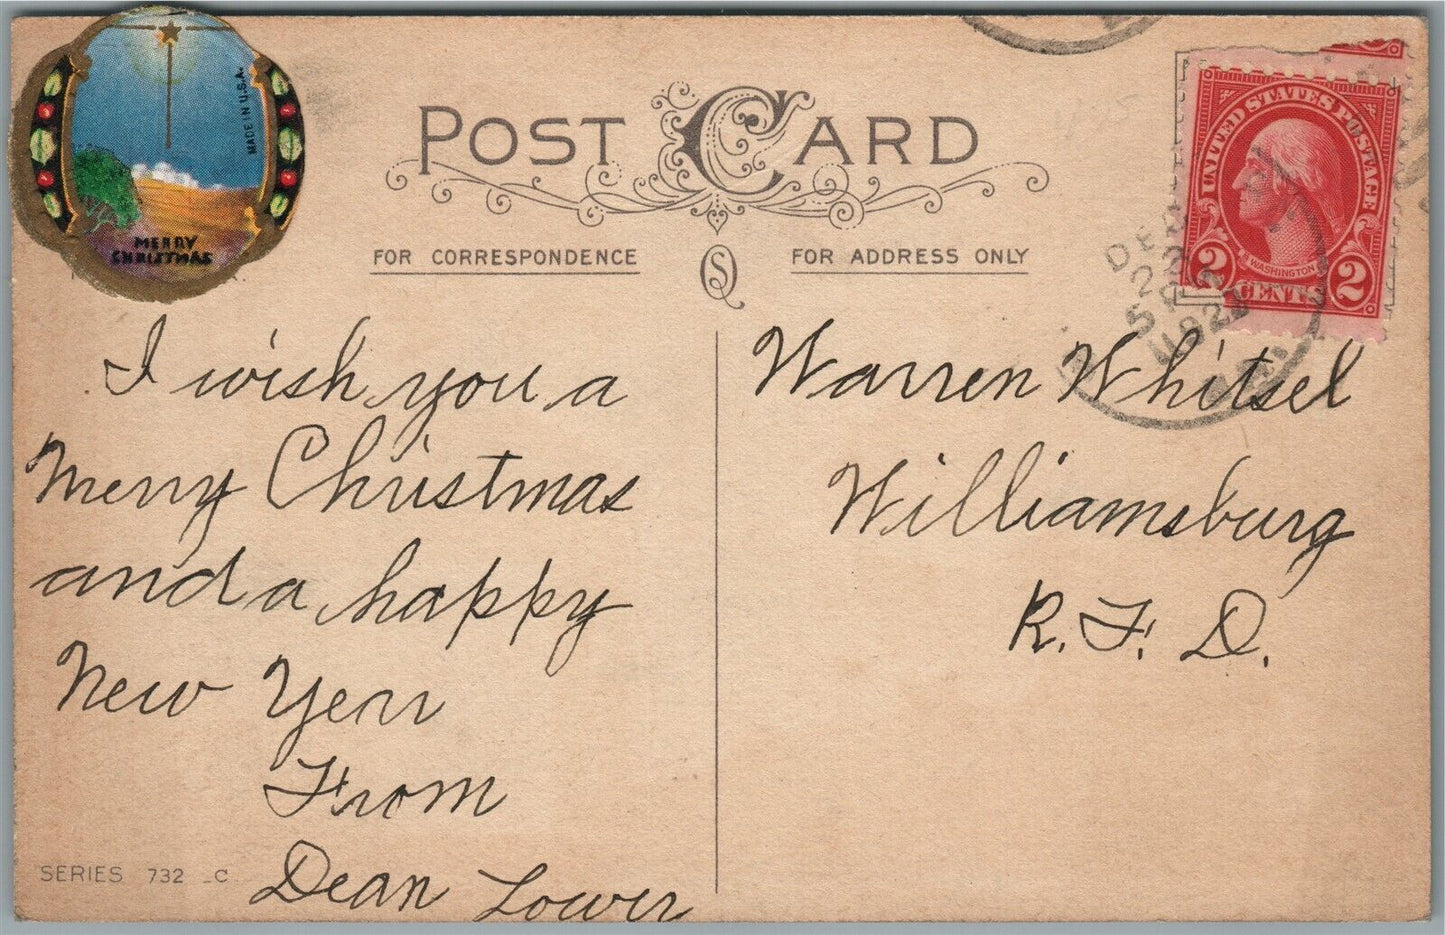 MADE IN U.S.A.
MERRY
CHRISTMAS
POST CARD
FOR CORRESPONDENCE
FOR ADDRESS ONLY
UNITED STATES POSTAGE
WASHINGTON
2 CENTS 2
DEC
22
I wish you a
Merry Christmas
and a happy
New Year
From
Dean Lower
Warren Whitsel
Williamsburg
R. F. D.
SERIES 732 C